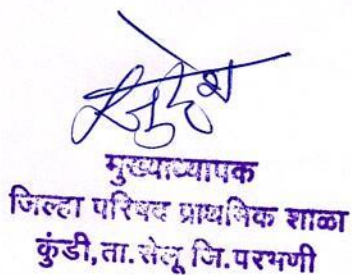 मुख्याध्यापक
जिल्हा परिषद प्राथमिक शाळा
कुंडी, ता. सेलू जि. परभणी